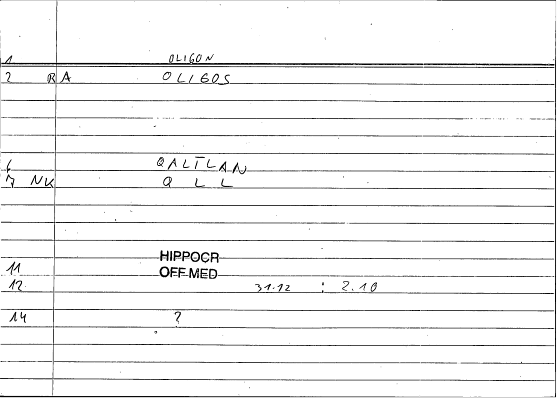 1 OLIGON
2 RA OLIGOS
6 QALTLAN
7 NK Q L L
HIPPOCR
11 OFF MED
12. 31.12 : 2.10
14 ?